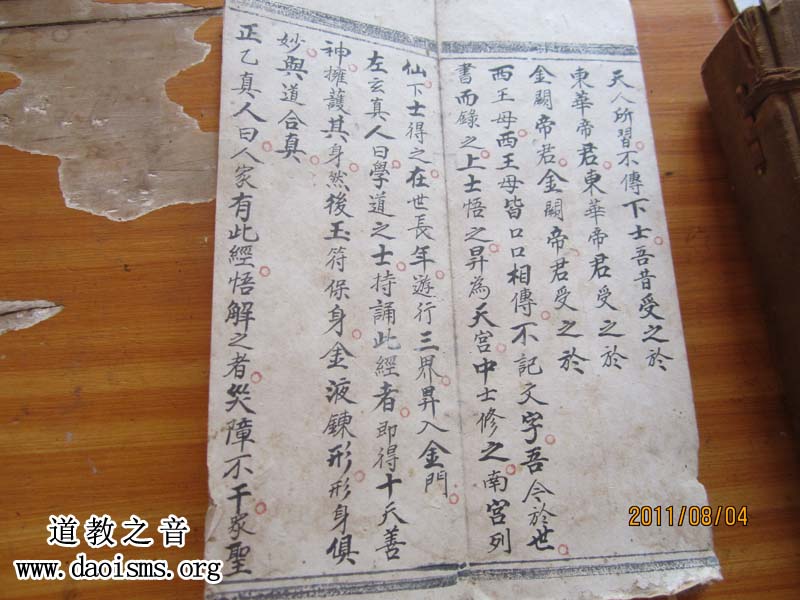 天人所習不傳下士吾昔受之於
東華帝君東華帝君受之於
金闕帝君金闕帝君受之於
西王母西王母皆口口相傳不記文字吾今於世
書而錄之上士悟之昇為天宮中士修之南宮列
仙下士得之在世長年遊行三界昇入金門
左玄真人曰學道之士持誦此經者即得十天善
神擁護其身然後玉符保身金液鍊形形身俱
妙與道合真
正乙真人曰人家有此經悟解之者災障不干家聖
2011/08/04
道教之音
www.daoisms.org